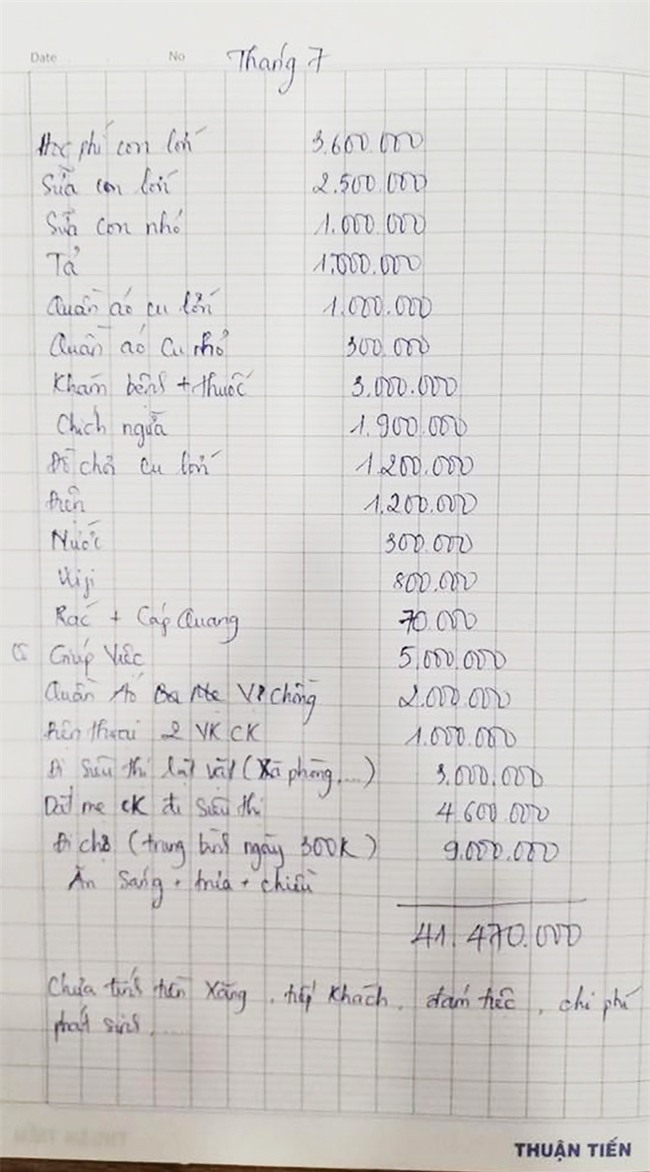 Date No Tháng 7
Học phí con lớn 3.600.000
Sữa con lớn 2.500.000
Sữa con nhỏ 1.000.000
Tả 1.000.000
Quần áo cu lớn 1.000.000
Quần áo cu nhỏ 300.000
Khám bệnh + thuốc 3.000.000
Chích ngừa 1.900.000
Đồ chơi cu lớn 1.200.000
Điện 1.200.000
Nước 300.000
800.000
Rác + Cáp Quang 70.000
Giúp Việc 5.000.000
Quần Áo Ba Mẹ Vợ chồng 2.000.000
Điện thoại 2 VK CK 1.000.000
Đi Siêu thị lặt vặt (Xà phòng,...) 3.000.000
Dắt mẹ CK đi Siêu thị 4.600.000
Đi chợ (trung bình ngày 300K) 9.000.000
Ăn Sáng + trưa + chiều
41.470.000
Chưa tính tiền Xăng, tiếp khách, đám tiệc, chi phí
phát sinh,....
THUẬN TIẾN